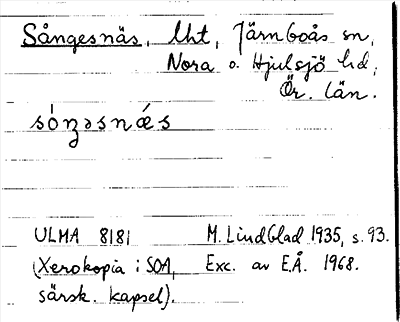 Sångesnäs, lht, Järnboås sn,
Nora o. Hjulsjö hd,
Ör. län.
sóŋəsnǽs
ULMA 8181 M. Lindblad 1935, s. 93.
(Xerokopia i SOA, Exc. av E.Å. 1968.
särsk. kapsel).